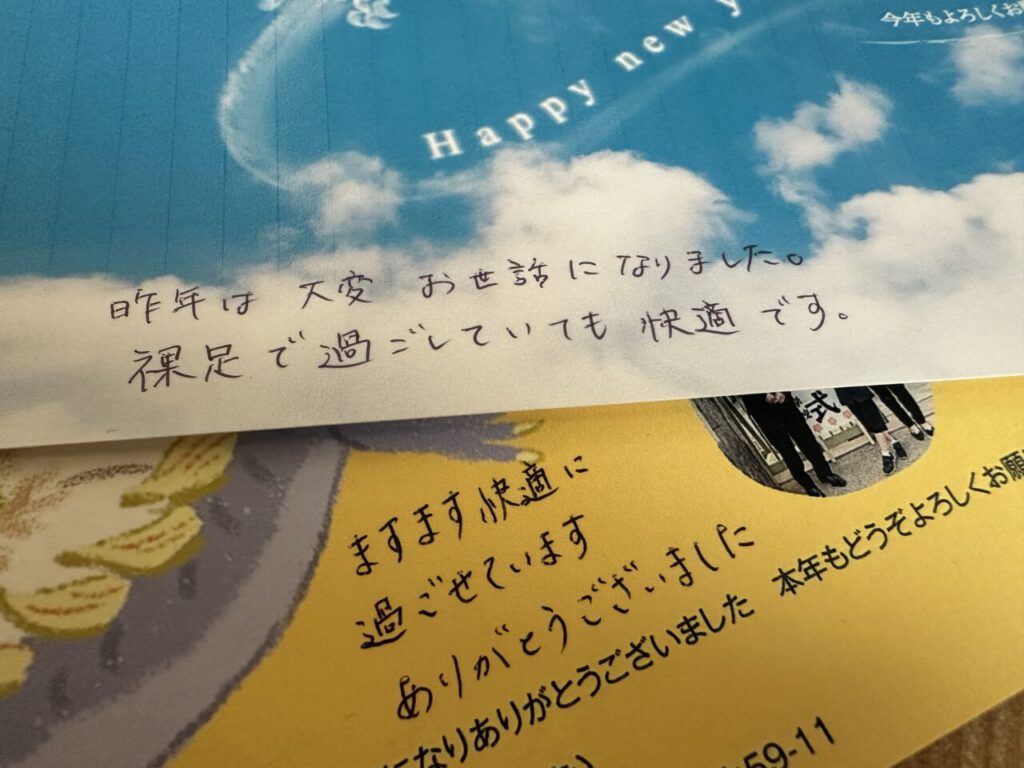 Happy new y
今年もよろしくお
昨年は大変お世話になりました。
裸足で過ごしていても快適です。
式
ますます快適に
過ごせています
ありがとうございました
になりありがとうございました 本年もどうぞよろしくお願
59-11